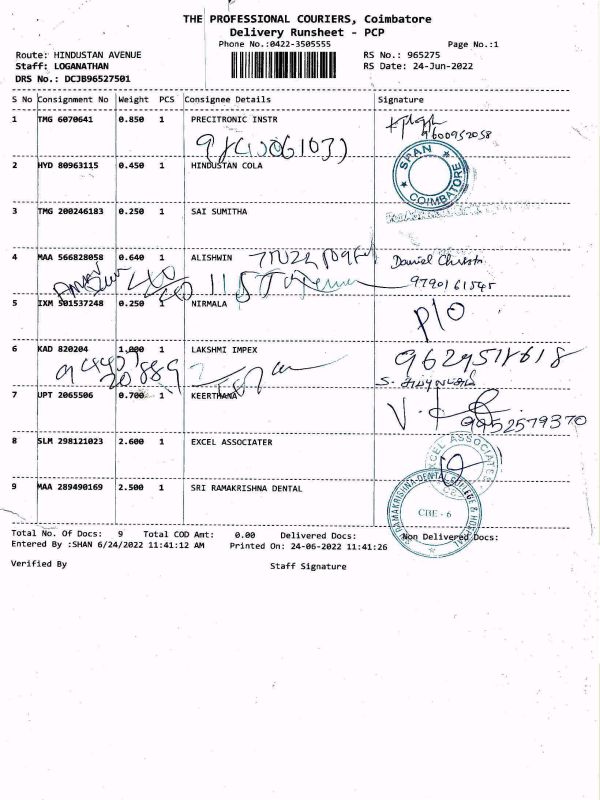 THE PROFESSIONAL COURIERS, Coimbatore
Delivery Runsheet - PCP
Phone No.:0422-3505555 Page No.:1
Route: HINDUSTAN AVENUE RS No.: 965275
Staff: LOGANATHAN RS Date: 24-Jun-2022
DRS No.: DCJB96527501
S No Consignment No Weight PCS Consignee Details Signature
1 TMG 6070641 0.850 1 PRECITRONIC INSTR
9600952058
2 HYD 80963115 0.450 1 HINDUSTAN COLA
SPAN
COIMBATORE
3 TMG 200246183 0.250 1 SAI SUMITHA
4 MAA 566828058 0.640 1 ALISHWIN Daniel
9790161545
5 IXM 501537248 0.250 1 NIRMALA P/O
6 KAD 820204 1.000 1 LAKSHMI IMPEX 9629518618
7 UPT 2065506 0.700 1 KEERTHANA 9952579370
8 SLM 298121023 2.600 1 EXCEL ASSOCIATER
EXCEL ASSOCIATE
9 MAA 289490169 2.500 1 SRI RAMAKRISHNA DENTAL
RAMAKRISHNA DENTAL COLLEGE & HOSPITAL
CBE - 6
Total No. Of Docs: 9 Total COD Amt: 0.00 Delivered Docs: Non Delivered Docs:
Entered By :SHAN 6/24/2022 11:41:12 AM Printed On: 24-06-2022 11:41:26
Verified By Staff Signature